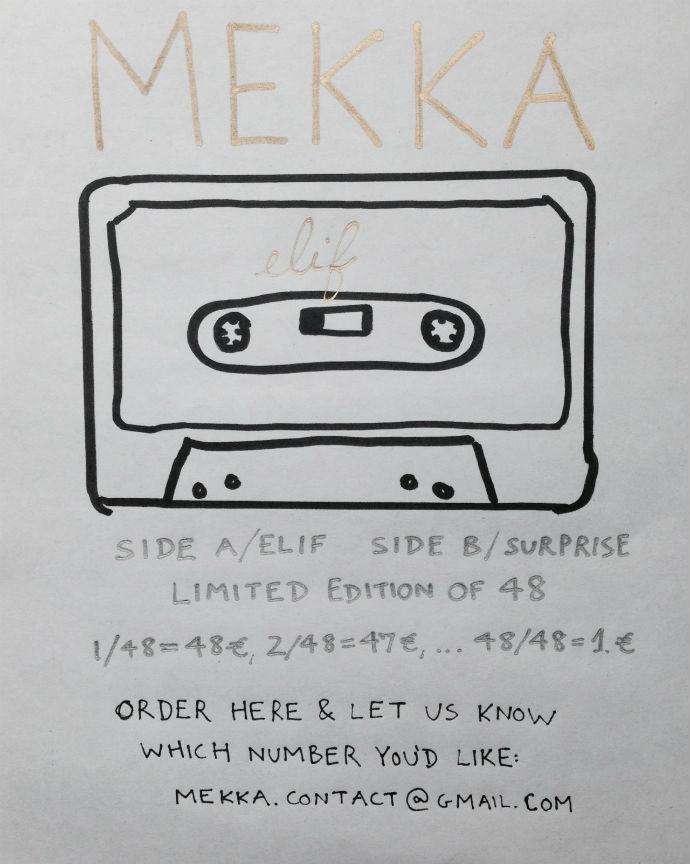 MEKKA
elif
SIDE A/ELIF SIDE B/SURPRISE
LIMITED EDITION OF 48
1/48=48€, 2/48=47€, ... 48/48=1.€
ORDER HERE & LET US KNOW
WHICH NUMBER YOU'D LIKE:
MEKKA.CONTACT@GMAIL.COM